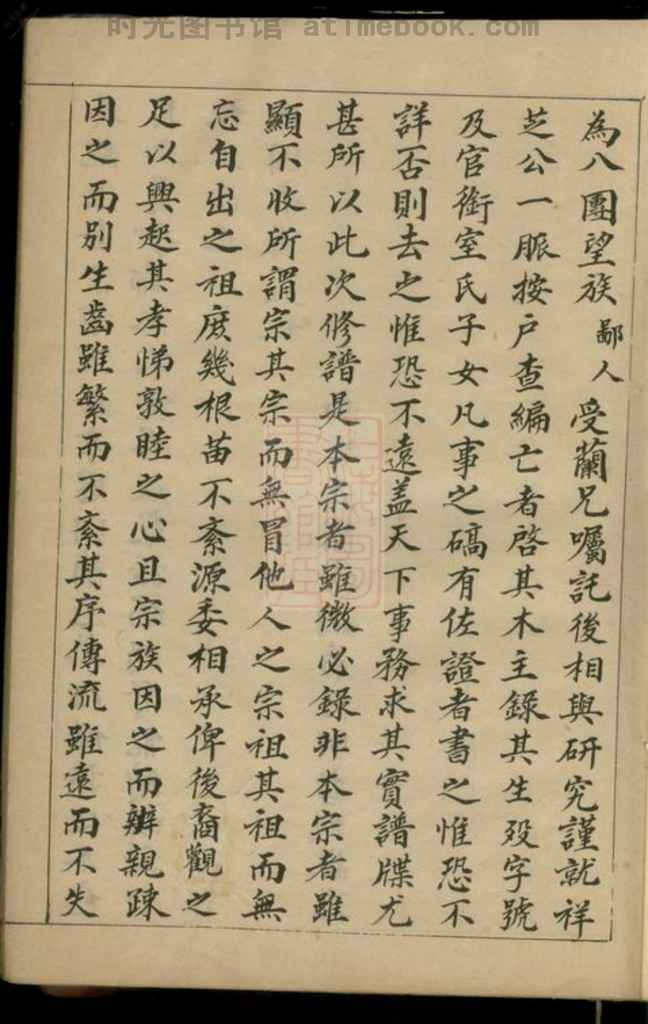 时光图书馆 atimebook.com
為八團望族鄙人受蘭兄囑託後相與研究謹就祥
芝公一脈按户查編亡者啓其木主錄其生殁字號
及官銜室氏子女凡事之碻有佐證者書之惟恐不
詳否則去之惟恐不遠盖天下事務求其實譜牒尤
甚所以此次修譜是本宗者雖微必錄非本宗者雖
顯不收所謂宗其宗而無冒他人之宗祖其祖而無
忘自出之祖庻幾根苗不紊源委相承俾後裔觀之
足以興起其孝悌敦睦之心且宗族因之而辦親疎
因之而別生齒雖繁而不紊其序傳流雖遠而不失